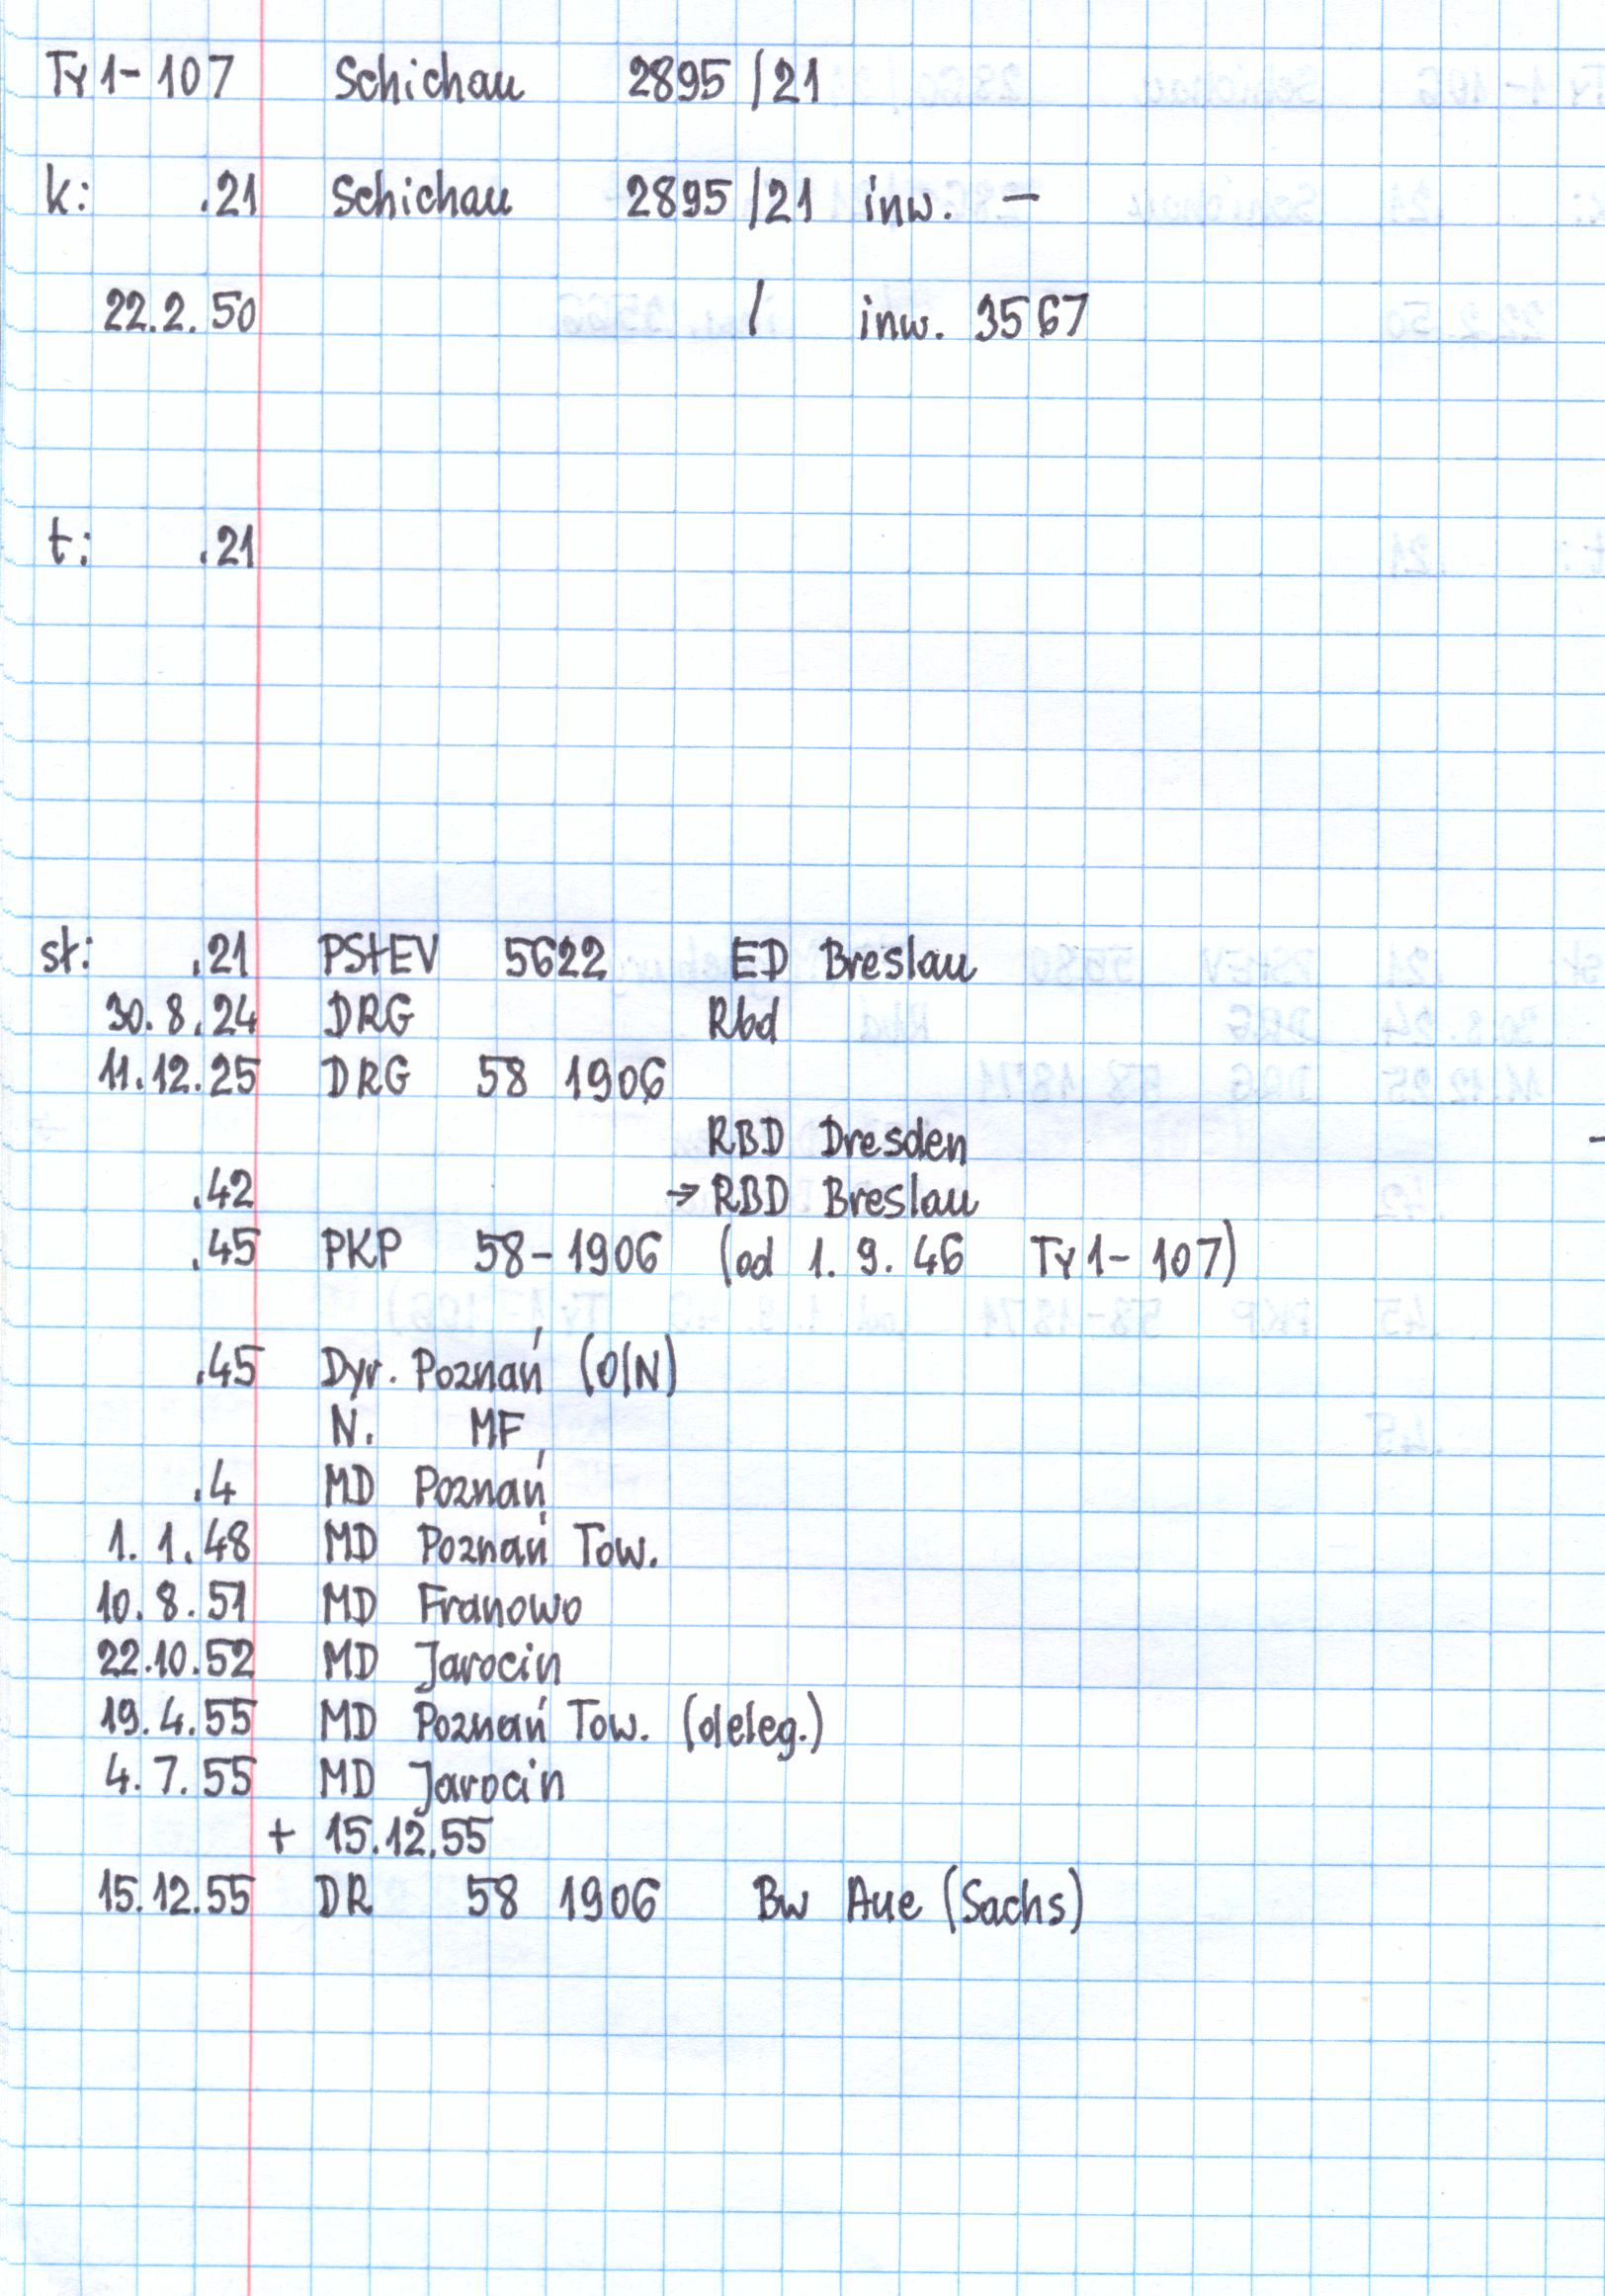 Ty1-107 Schichau 2895/21
k: .21 Schichau 2895/21 inw. -
22.2.50 / inw. 3567
t: .21
st: .21 PStEV 5622 ED Breslau
30.8.24 DRG Rbd
11.12.25 DRG 58 1906
RBD Dresden
.42 → RBD Breslau
.45 PKP 58-1906 (od 1.9.46 Ty1-107)
.45 Dyr. Poznań (O/N)
N. MF
.4 MD Poznań
1.1.48 MD Poznań Tow.
10.8.51 MD Franowo
22.10.52 MD Jarocin
19.4.55 MD Poznań Tow. (deleg.)
4.7.55 MD Jarocin
+ 15.12.55
15.12.55 DR 58 1906 Bw Aue (Sachs)